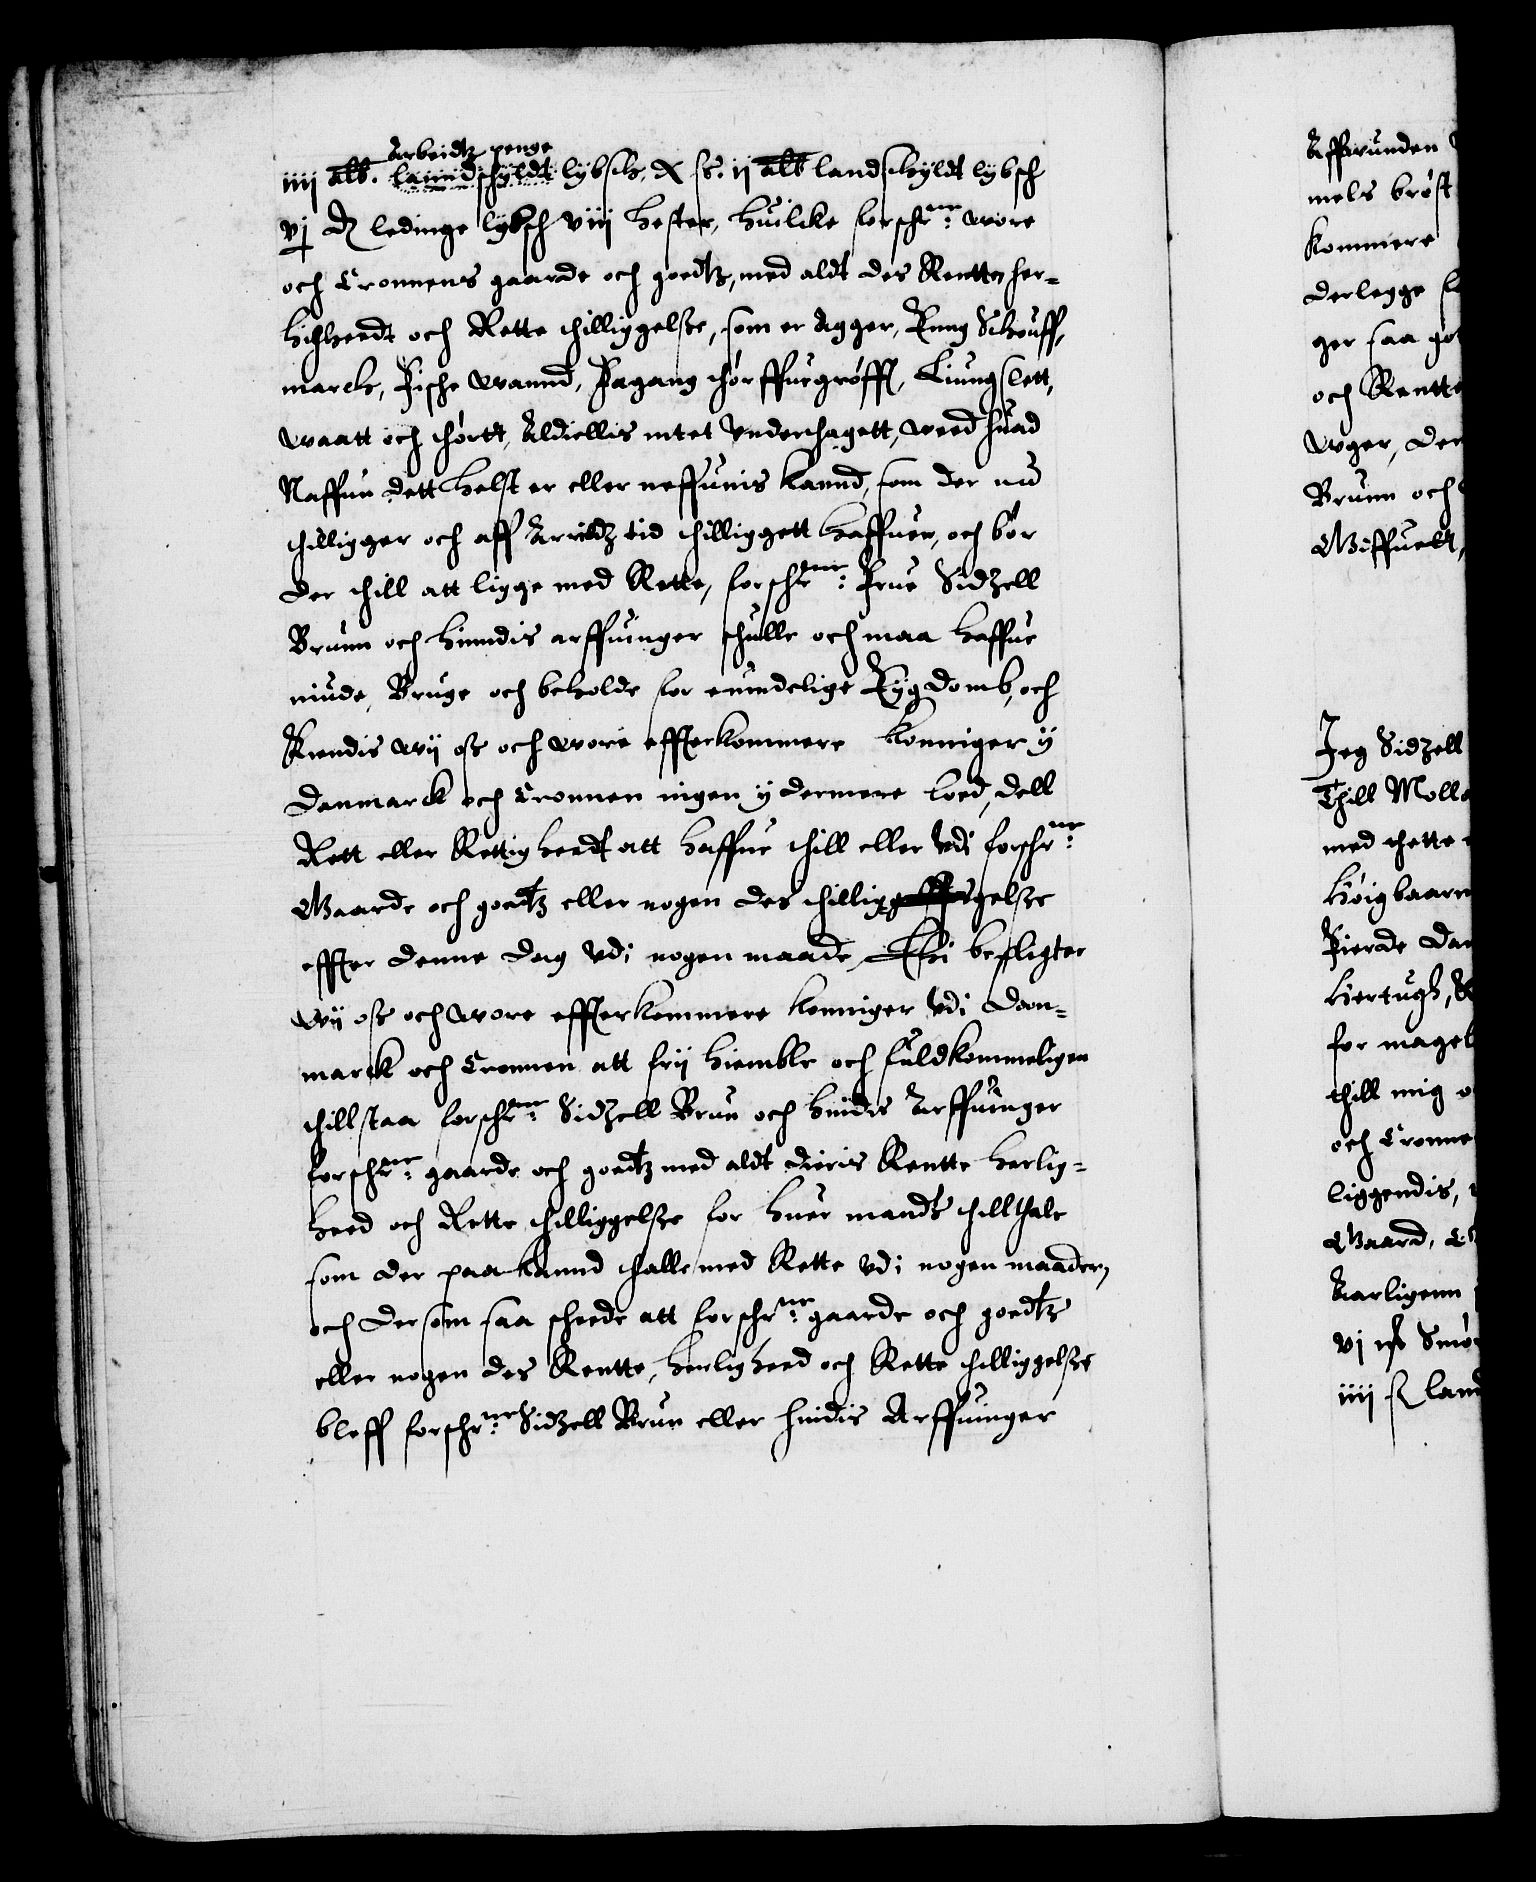 Arbeidtz penge
iiij alb. lanndschyldt lybsch. X ss. ij alb landschyldt lybsch
vj ledinge lybsch viij hester, huilcke forschrne: wore
och Cronnens gaarde och goedtz, med aldt des Rentte her-
ligheedt och Rette thilliggelsze, som er Agger, Enng Schouff,
marck, Fische wannd, Fægang thørffuegrøfft, Liungslett,
waatt och thørtt, Aldiellis intet Vnderthagett, weed huad
Naffun dett helst er eller neffunis kannd, som der nu
thilligger och aff Arrildz tid thilliggett haffuer, och bør
der thill att ligge med Rette, forschrne: Frue Sidzell
Brunn och hinndis arffuinger schulle och maa haffue
niude, Bruge och beholde for euindelige Eygdomb, och
Kiendis wij osz och wore effterkommere konniger y
Danmarck och Cronnen ingen ydermere lod, dell
Rett eller Rettigheedt att haffue thill eller vdi forschrne:
Gaarde och goedtz eller nogen des thilliggelsze
effter denne dag vdi nogen maade, Thi bepligter
wij osz och wore effterkommere konniger vdi Dan-
marck och Cronnen att frij hiemble och fuldkommeligen
thillstaa forschrne: Sidzell Brun och hindis Arffuinger
forschrne: gaarde och goedtz med aldt dieris Rentte herlig-
heed och Rette thilliggelsze for huer mands thillthale
som der paa kannd thalle med Rette vdi nogen maader,
och der som saa scheede att forschrne: gaarde och goedtz
eller nogen des Rentte, herligheed och Rette thilliggelsze
bleff forschrne: Sidzell Brun eller hindis Arffuinger
Affwunden
mels brøst
kommere
derlegge
ger saa
och Rentte
wger, der
Brunn och
Jeg Sidzell
Thill
med thette
Høigbaarn
Fierde
Hertugh,
for magel
thill mig
och Cronne
liggendis,
Gaard,
Aarligenn
vj
iiij land